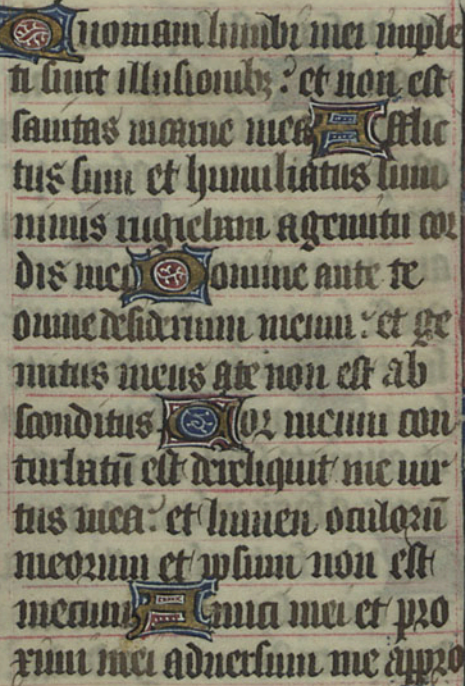 Quoniam lumbi mei imple
ti sunt illusionibꝫ : et non est
sanitas in carne mea Afflic
tus sum et humiliatus sum
nimis rugiebam a gemitu cor
dis mei Domine ante te
omne desiderium meum : et ge
mitus meus a te non est ab
sconditus Cor meum con
turbatū est dereliquit me uir
tus mea : et lumen oculorū
meorum et ipsum non est
mecum Amici mei et pro
ximi mei aduersum me appro